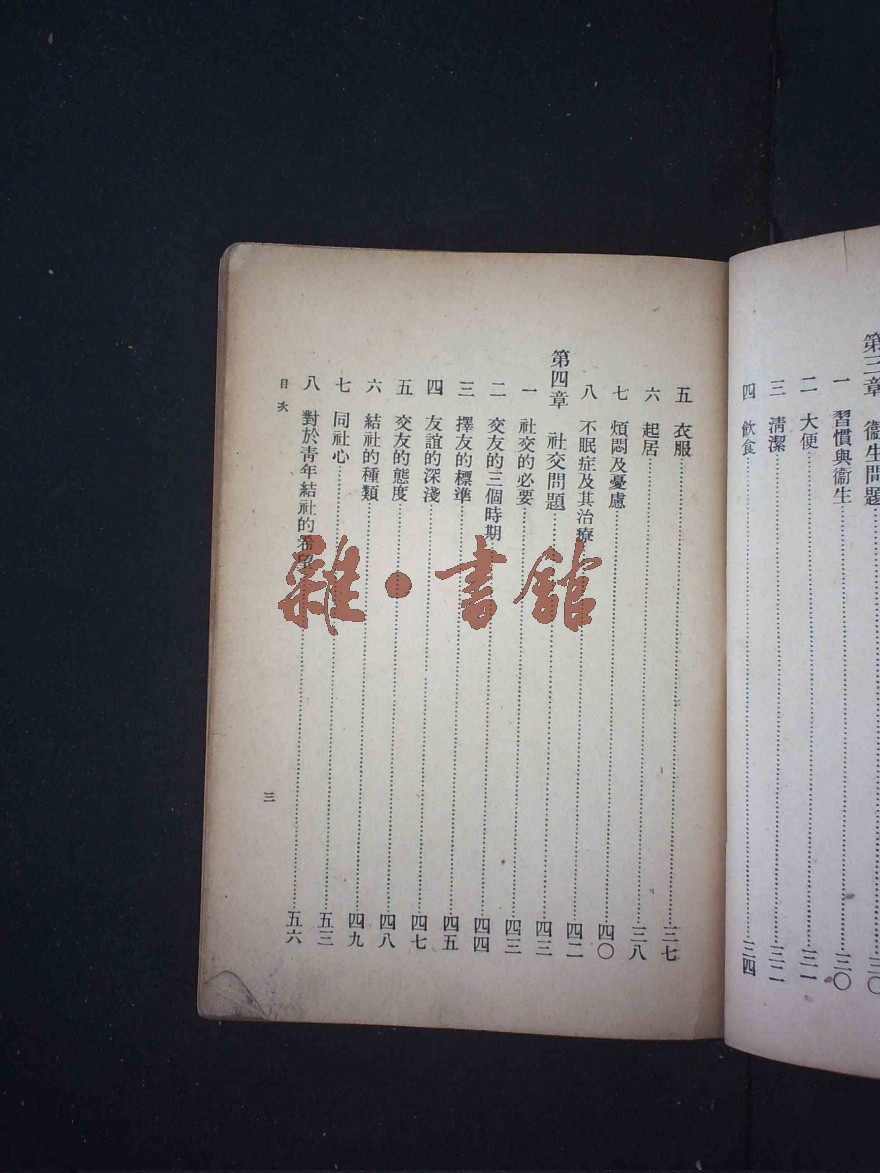 第三章　衞生問題……三〇
一　習慣與衞生……三〇
二　大便……三一
三　淸潔……三二
四　飮食……三四
五　衣服……三七
六　起居……三八
七　煩悶及憂慮……四〇
八　不眠症及其治療……四二
第四章　社交問題……四三
一　社交的必要……四三
二　交友的三個時期……四四
三　擇友的標準……四五
四　友誼的深淺……四七
五　交友的態度……四八
六　結社的種類……四九
七　同社心……五三
八　對於靑年結社的希望……五六
目次
三
雜·書館